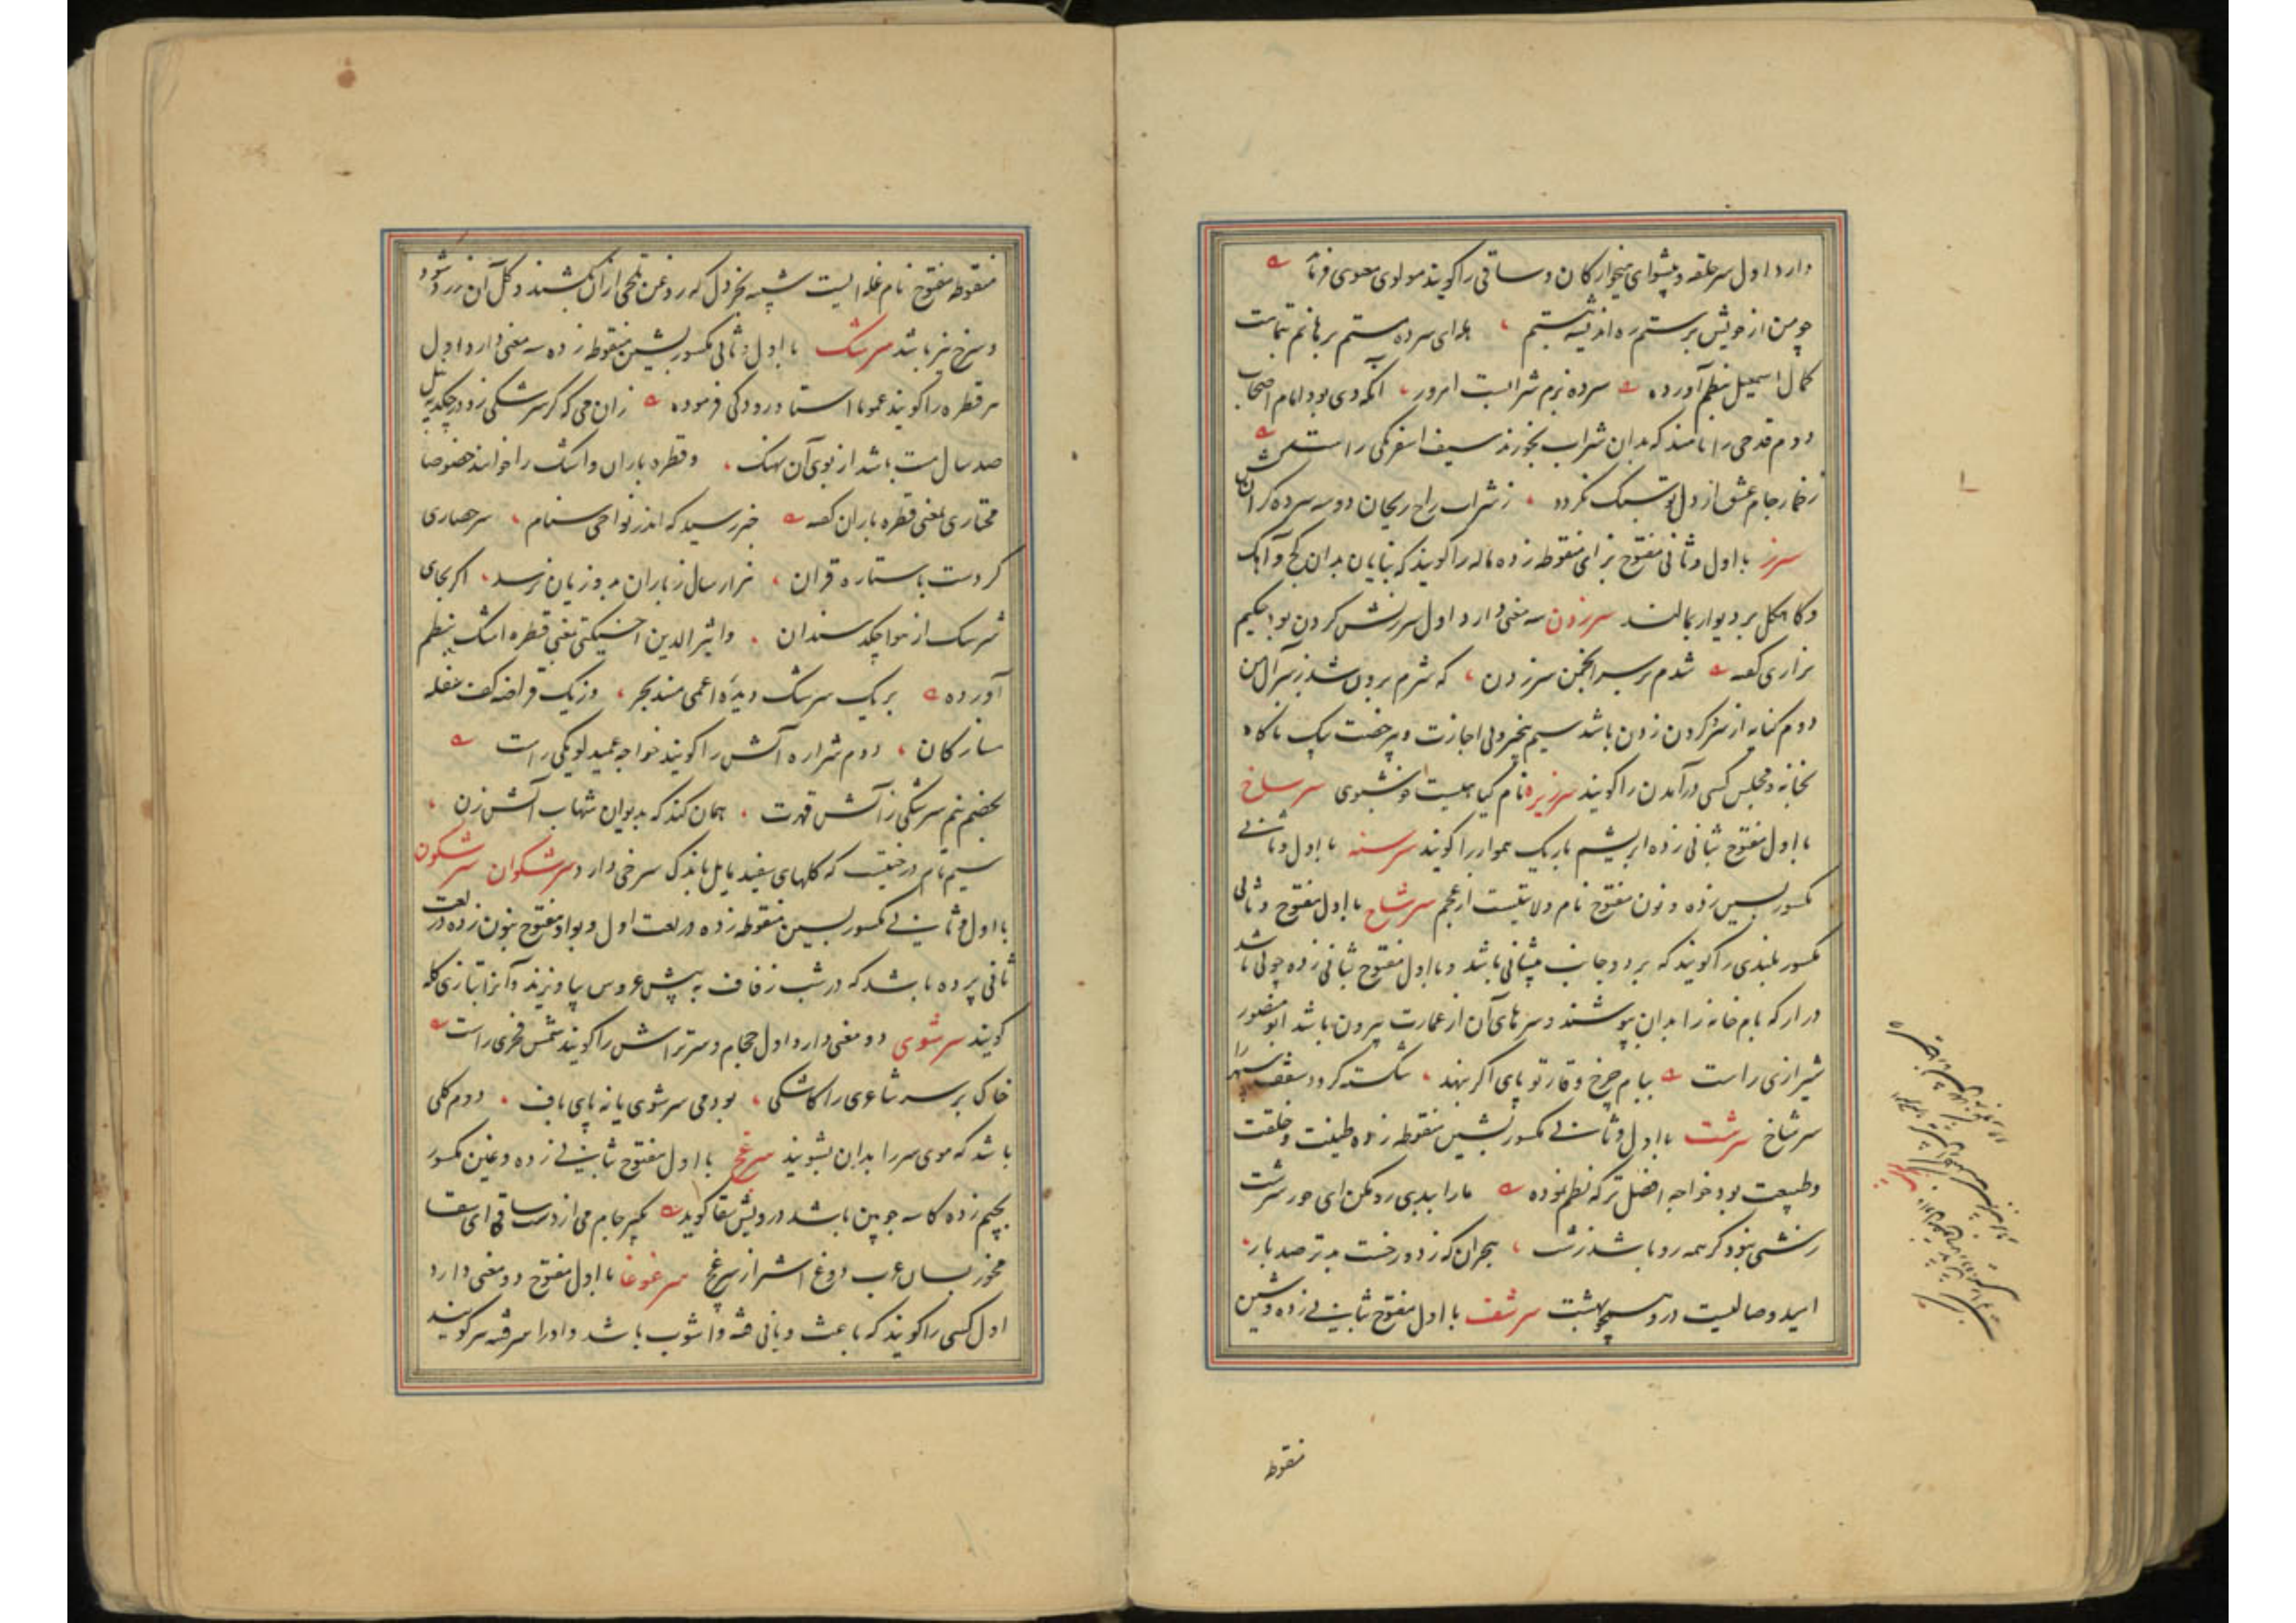 دارد اول سر حلقه و پیشوای میخوارکان و ساقی را کویند مولوی معنوی فرماید
چو من از خویش برستم ره اندیشه ببستم هله ای سرده مستم برهانم بتمامت
کمال اسمعیل بنظم آورده سرده بزم شرابست امروز آنکه دی بود امام اصحاب
دوم قدحی را نامند که بدان شراب بخورند سیف اسفرنکی راست
ز خمار جام عشق از دل تو سبک نکردد ز شراب راح ریحان دو سه سرده کران کش
سرز با اول و ثانی مفتوح بزای منقوطه زده ماله را کویند که بنایان بدان کج و آهک
و کاهکل بر دیوار بمالند سرزدن سه معنی دارد اول سرزنش کردن بود حکیم
نزاری کفته شدم بر سر انجمن سرزدن که شرم برون شد ز سر آل من
دوم کنایه از سر کردن زدن باشد سیم بیخبر و بی اجازت و بیرخصت یک ناکاه
بخانه و مجلس کسی درآمدن را کویند سرزیره نام کیاهیست خوشبوی سرساخ
با اول مفتوح بثانی زده ابریشم باریک هموار را کویند سرسنه با اول و ثانی
مکسور بسین زده و نون مفتوح نام ولایتیست از عجم سرشاخ با اول مفتوح و ثانی
مکسور بلندی را کویند که بر دو جانب پیشانی باشد و با اول مفتوح بثانی زده چوبی باشد
دراز که بام خانه را بدان بپوشند و سرهای آن از عمارت بیرون باشد ابو منصور
شیرازی راست ببام چرخ وقار تو پای اکر بنهد شکسته کردد سقف سپهر را
سرشاخ سرشت با اول و ثانی مکسور بشین منقوطه زده طینت و خلقت
و طبیعت بود خواجه افضل ترکه نظم نموده ما را ببدی رد مکن ای حور سرشت
زشتی نبود کر همه رو باشد زشت هجران که ز دوزخست بدتر صد بار
امید وصالیست درو همچو بهشت سرشف با اول مفتوح بثانی زده و شین
منقوطه
منقوطه مفتوح نام غله ایست شبیه بخردل که روغن تلخی از آن بکشند و کل آن زرد شود
و سرخ نیز باشد سرشک با اول و ثانی مکسور بشین منقوطه زده سه معنی دارد اول
هر قطره را کویند عموما استاد رودکی فرموده زان می که کر سرشکی زو در چکد بنیل
صد سال مست باشد از بوی آن نهنک و قطره باران و اشک را خوانند خصوصا
مختاری بمعنی قطره باران کفته خبر رسید که اندر نواحی سنام سر حصاری
کردست با ستاره قران هزار سال ز باران بدو زیان نرسد اکر بجای
سرشک از هوا چکد سندان و اثیر الدین اخسیکتی بمعنی قطره اشک بنظم
آورده بر یک سرشک دیده اعمی مسند بحر وز یک قراضه کفت منقله
ساز کان دوم شراره آتش را کویند خواجه عمید لویکی راست
بخصم نم سرشکی ز آتش قهرت همان کند که بدیوان شهاب آتش زن
سیم نام درختیست که کلهای سفید مایل باندک سرخی دارد سرشکوان سرشکون
با اول و ثانی مکسور بسین منقوطه زده در لغت اول و بواو مفتوح بنون زده در لغت
ثانی پرده باشد که در شب زفاف به پیش عروس بیاویزند و آنرا بتازی کله
کویند سرشوی دو معنی دارد اول حجام و سرتراش را کویند شمس فخری راست
خاک بر سر شاعری را کاشکی بودمی سرشوی یا نه پای باف دوم کلی
باشد که موی سر را بدان بشویند سرغج با اول مفتوح بثانی زده و غین مکسور
بجیم زده کاسه چوبین باشد درویش سقا کوید بکیر جام می از دست ساقی ای سقا
مخور بسان عرب دوغ اشتر از سرغج سرغوغا با اول مفتوح دو معنی دارد
اول کسی را کویند که باعث و بانی فتنه و آشوب باشد و او را سر فتنه سر کویند